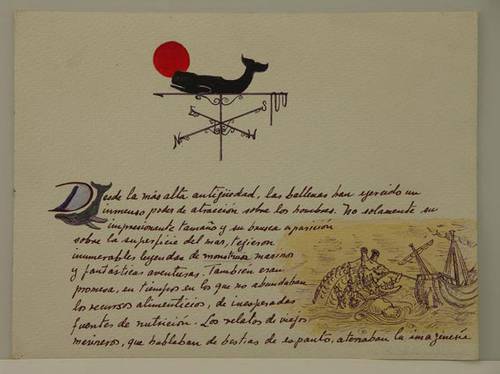 N E S W
Desde la más alta antigüedad, las ballenas han ejercido un
inmenso poder de atracción sobre los hombres. No solamente su
impresionante tamaño y su brusca aparición
sobre la superficie del mar, tejieron
innumerables leyendas de monstruos marinos
y fantásticas aventuras. Tambien eran
promesa, en tiempos en los que no abundaban
los recursos alimenticios, de inesperadas
fuentes de nutrición. Los relatos de viejos
marineros, que hablaban de bestias de espanto, aterraban la imaginería